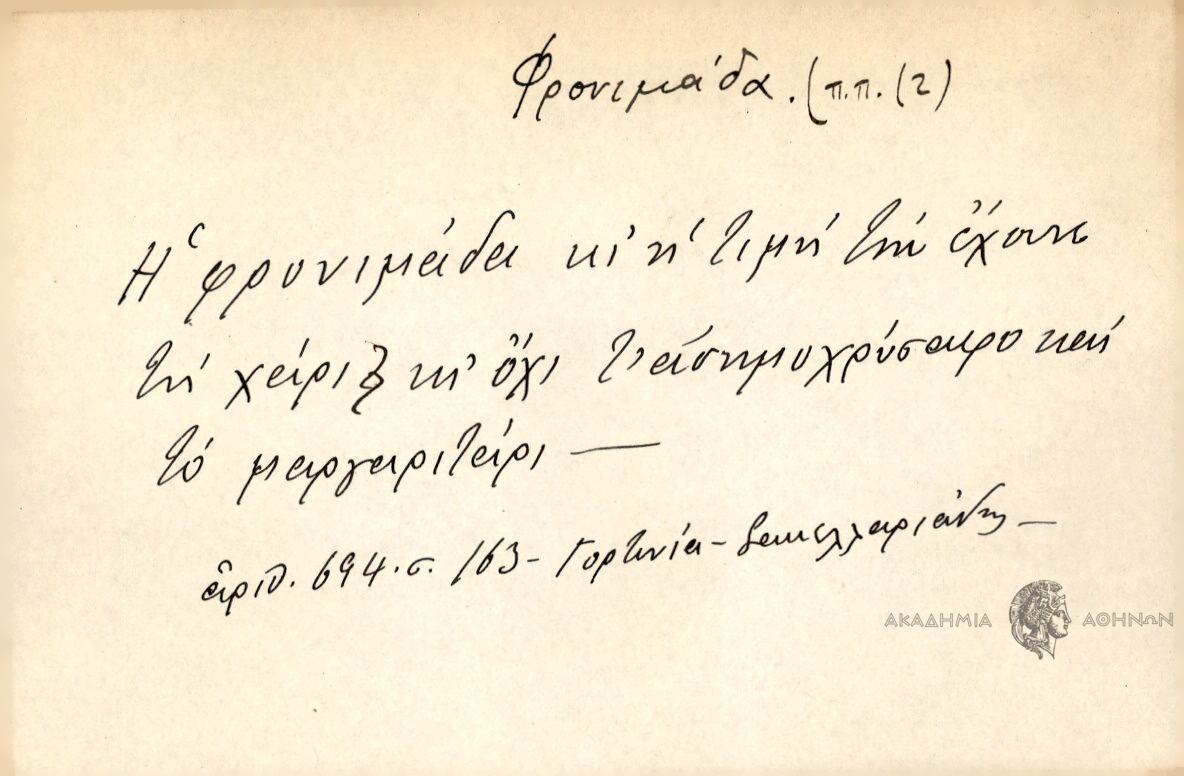 Φρονιμάδα. (π.π. (2)
Ἡ φρονιμάδα κι' ἡ τιμή τήν ἔχουνε
τή χάρι κι' ὄχι τ' ἀσημοχρύσαφο καί
τό μαργαριτάρι —
ἀριθ. 694. σ. 163 - Γορτυνία - Σακελλαριάδης —
ΑΚΑΔΗΜΙΑ ΑΘΗΝΩΝ